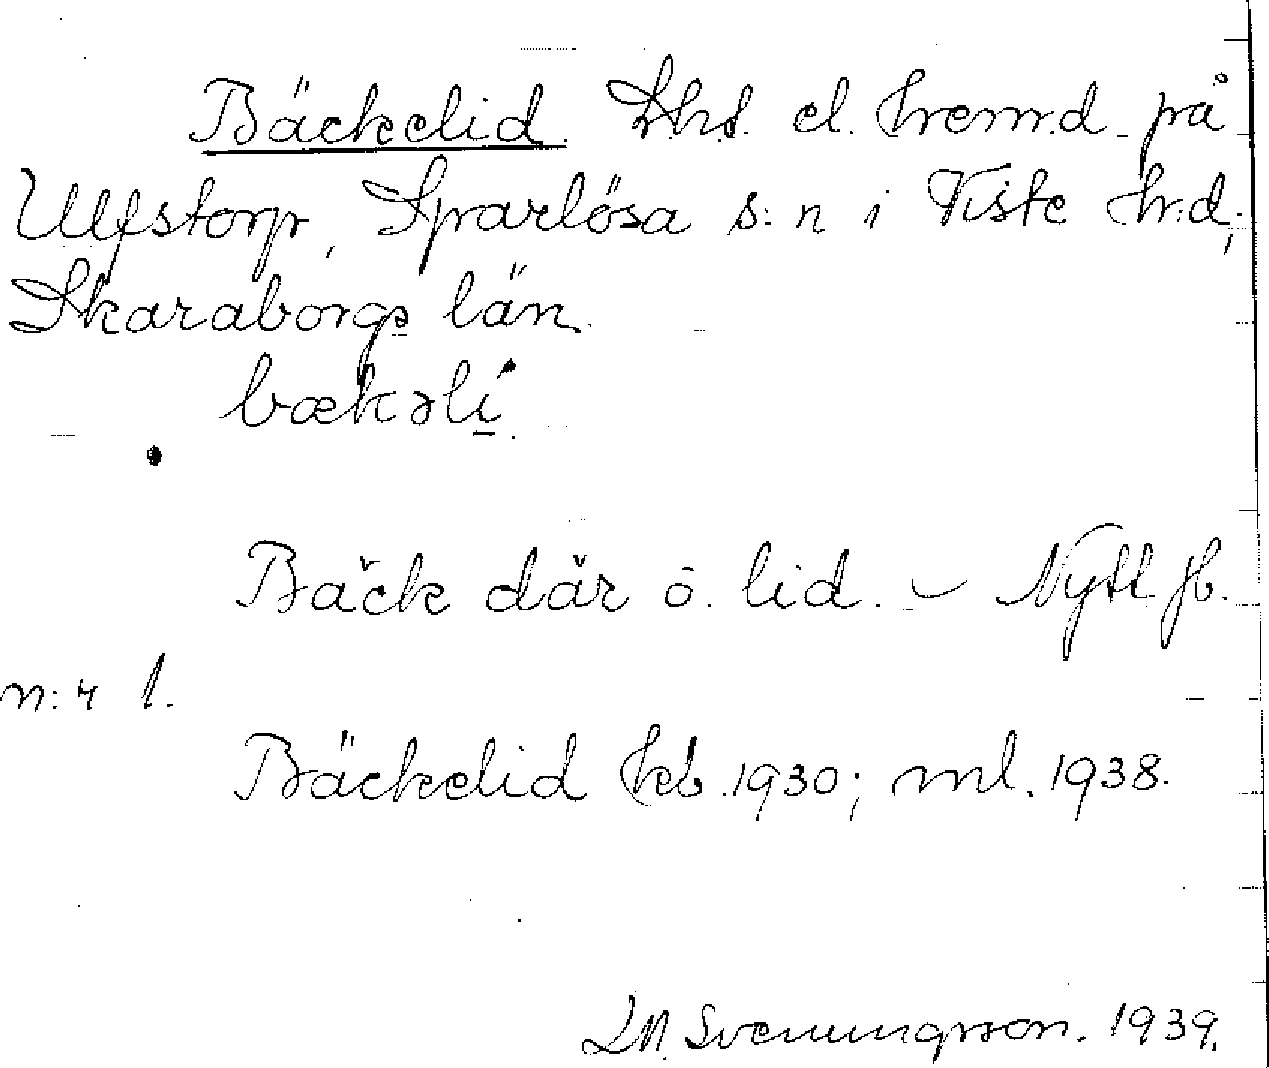 Bäckelid. Lhs. el. hemm.d. på
Ulfstorp, Sparlösa s:n i Viste hr:d,
Skaraborgs län.
bækəli
Bäck där o. lid. – Nytt jb.
n:r 1.
Bäckelid hb. 1930; ml. 1938.
LM. Svenungsson. 1939.